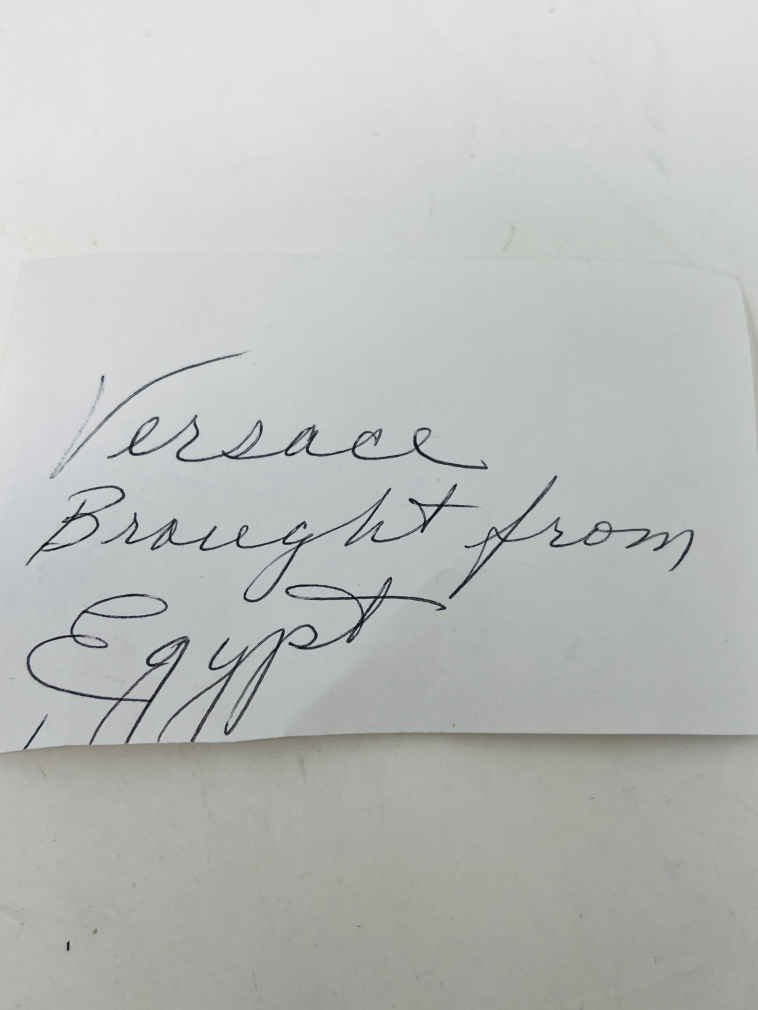 Versace
Brought from
Egypt